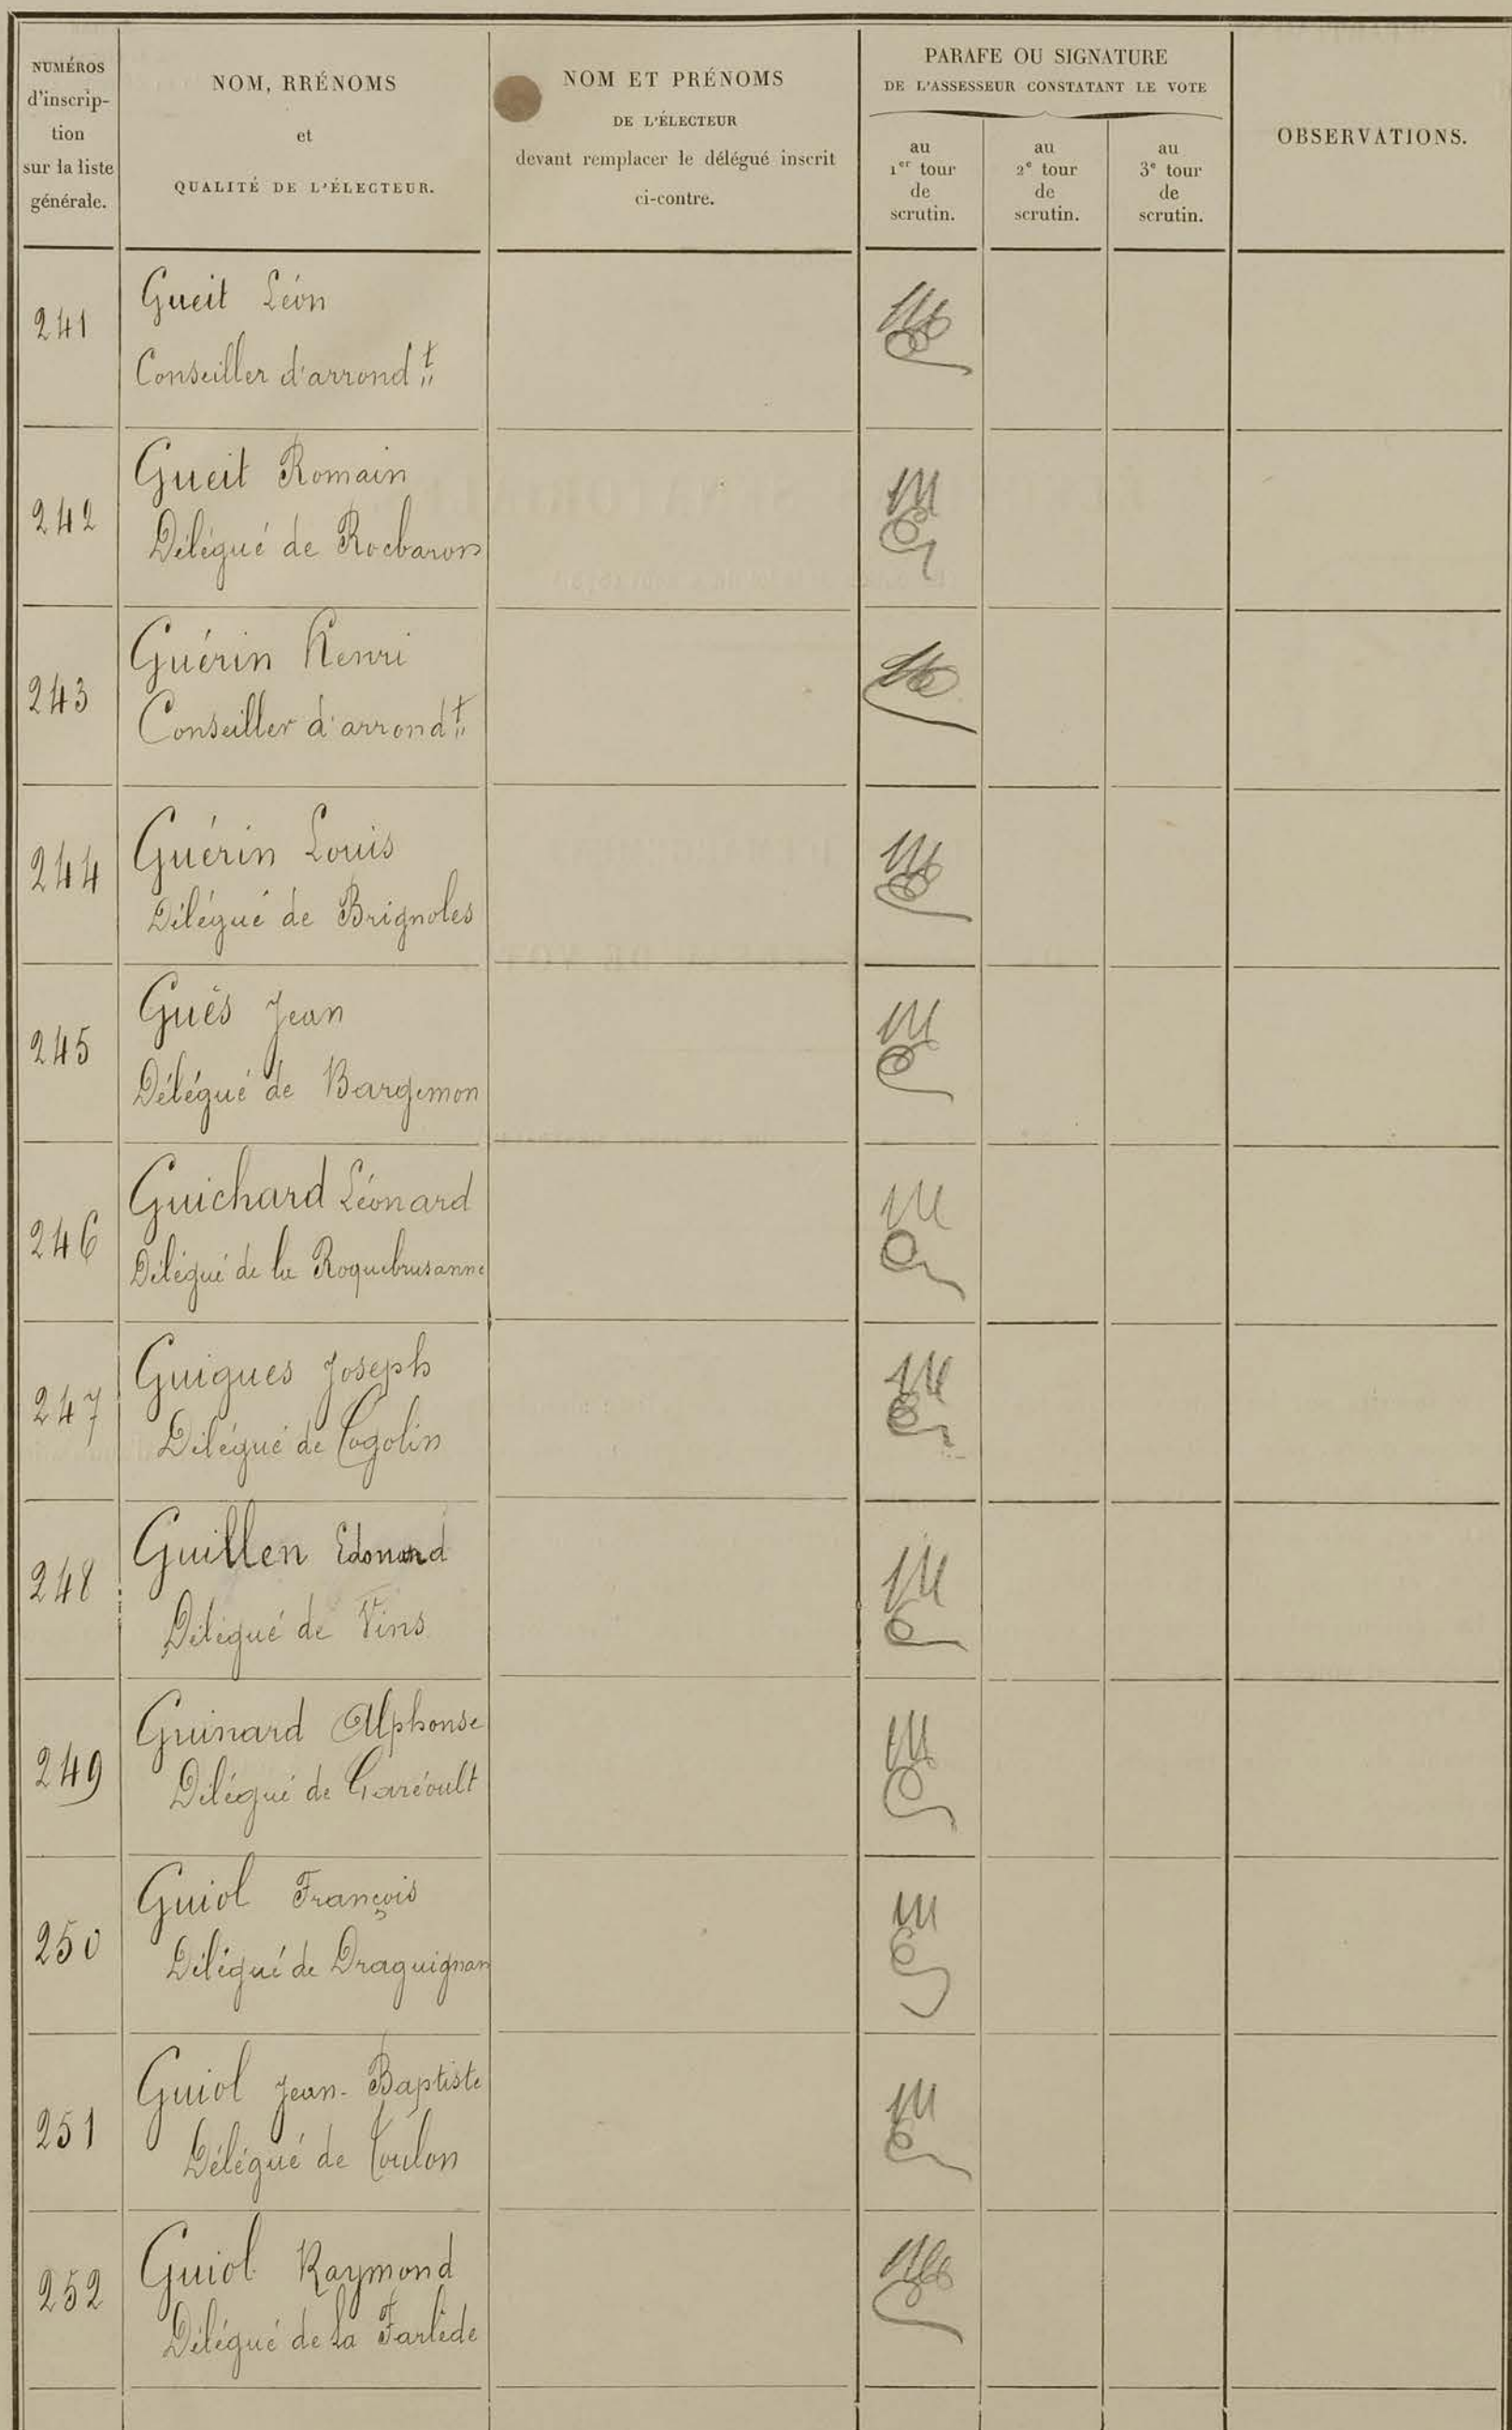 NUMÉROS
d'inscrip-
tion
sur la liste
générale.
NOM, RRÉNOMS
et
QUALITÉ DE L'ÉLECTEUR.
NOM ET PRÉNOMS
DE L'ÉLECTEUR
devant remplacer le délégué inscrit
ci-contre.
PARAFE OU SIGNATURE
DE L'ASSESSEUR CONSTATANT LE VOTE
au
1er tour
de
scrutin.
au
2e tour
de
scrutin.
au
3e tour
de
scrutin.
OBSERVATIONS.
241
Gueit Léon
Conseiller d'arrondt
242
Gueit Romain
Délégué de Rocbaron
243
Guérin Henri
Conseiller d'arrondt
244
Guérin Louis
Délégué de Brignoles
245
Guès Jean
Délégué de Bargemon
246
Guichard Léonard
Délégué de la Roquebrusanne
247
Guigues Joseph
Délégué de Cogolin
248
Guillen Edouard
Délégué de Vins
249
Guinard Alphonse
Délégué de Garéoult
250
Guiol François
Délégué de Draguignan
251
Guiol Jean-Baptiste
Délégué de Toulon
252
Guiol Raymond
Délégué de La Farlède